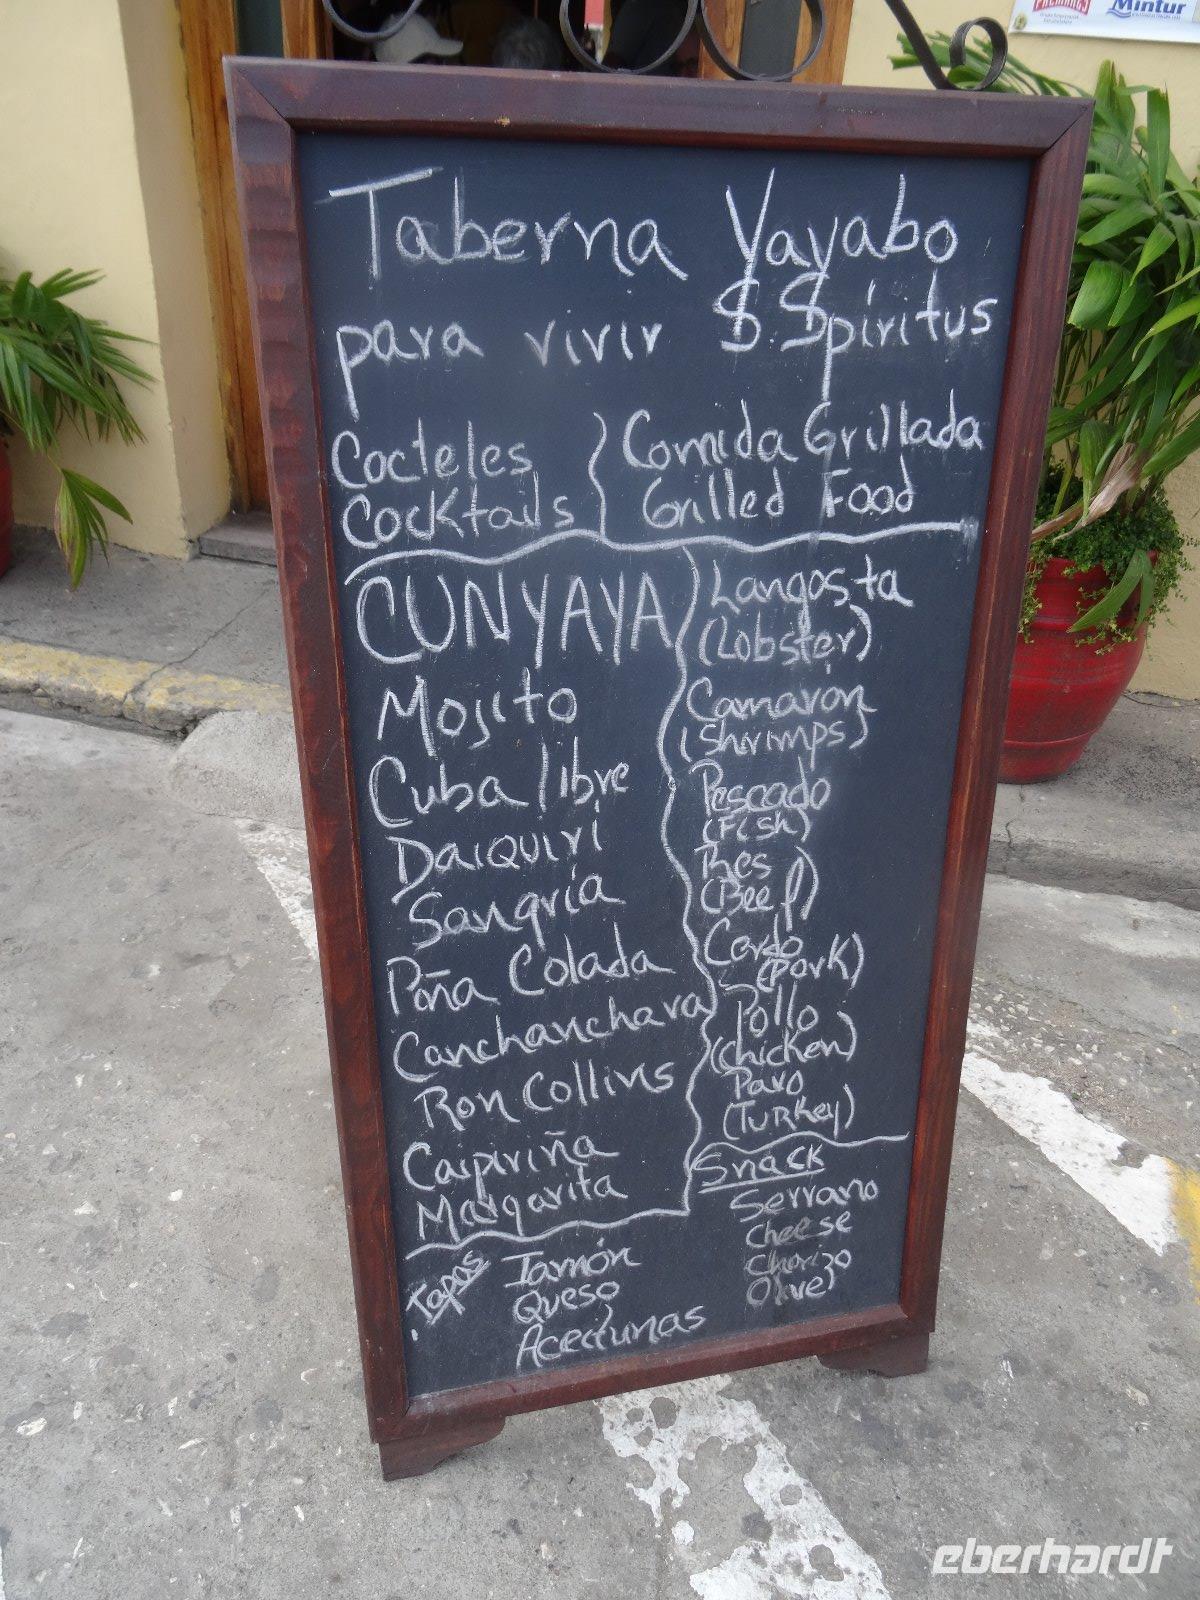 Mintur
Taberna Yayabo
para vivir S. Spíritus
Cocteles
Cocktails
Comida Grillada
Grilled Food
CUNYAYA
Mojito
Cuba libre
Daiquiri
Sangría
Piña Colada
Canchanchara
Ron Collins
Caipiriña
Margarita
Langosta
(Lobster)
Camarón
(Shrimps)
Pescado
(Fish)
Res
(Beef)
Cerdo
(Pork)
Pollo
(Chicken)
Pavo
(Turkey)
Snack
Serrano
Cheese
Chorizo
Olive
Tapas
Jamón
Queso
Aceitunas
eberhardt